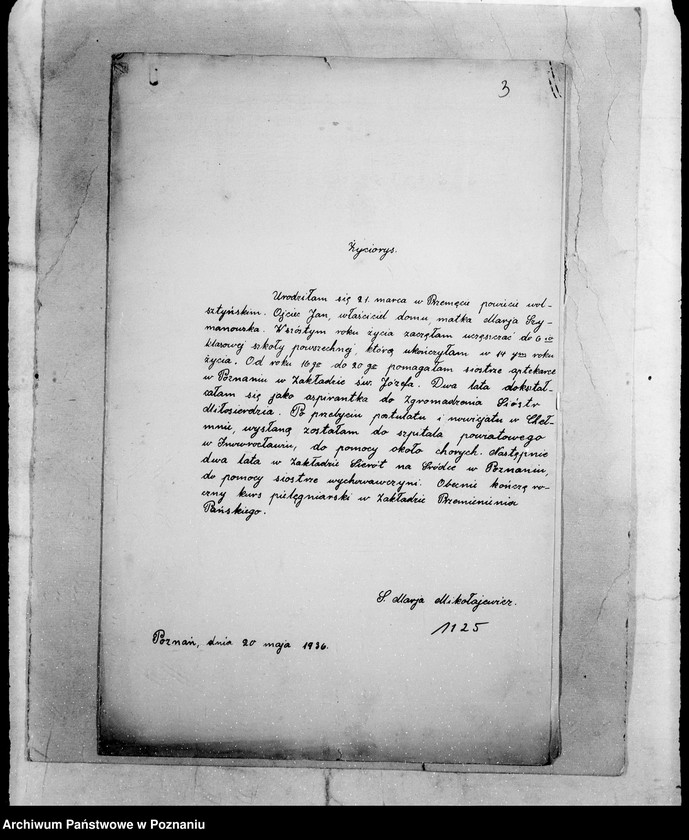 3
Życiorys.
Urodziłam się 21. marca w Przemęcie powiecie wol-
sztyńskim. Ojciec Jan, właściciel domu, matka Marja Szy-
manowska. W szóstym roku życia zaczęłam uczęszczać do 6 cio
klasowej szkoły powszechnej, którą ukończyłam w 14 tym roku
życia. Od roku 16 go do 20 go pomagałam siostrze aptekarce
w Poznaniu w Zakładzie św. Józefa. Dwa lata dokształ-
całam się jako aspirantka do Zgromadzenia Sióstr
Miłosierdzia. Po przebyciu postulatu i nowicjatu w Cheł-
mnie, wysłaną zostałam do szpitala powiatowego
w Inowrocławiu, do pomocy około chorych. Następnie
dwa lata w Zakładzie Sierót na Śródce w Poznaniu,
do pomocy siostrze wychowawczyni. Obecnie kończę ro-
czny kurs pielęgniarski w Zakładzie Przemienienia
Pańskiego.
S. Marja Mikołajewicz.
1125
Poznań, dnia 20 maja 1936.
Archiwum Państwowe w Poznaniu